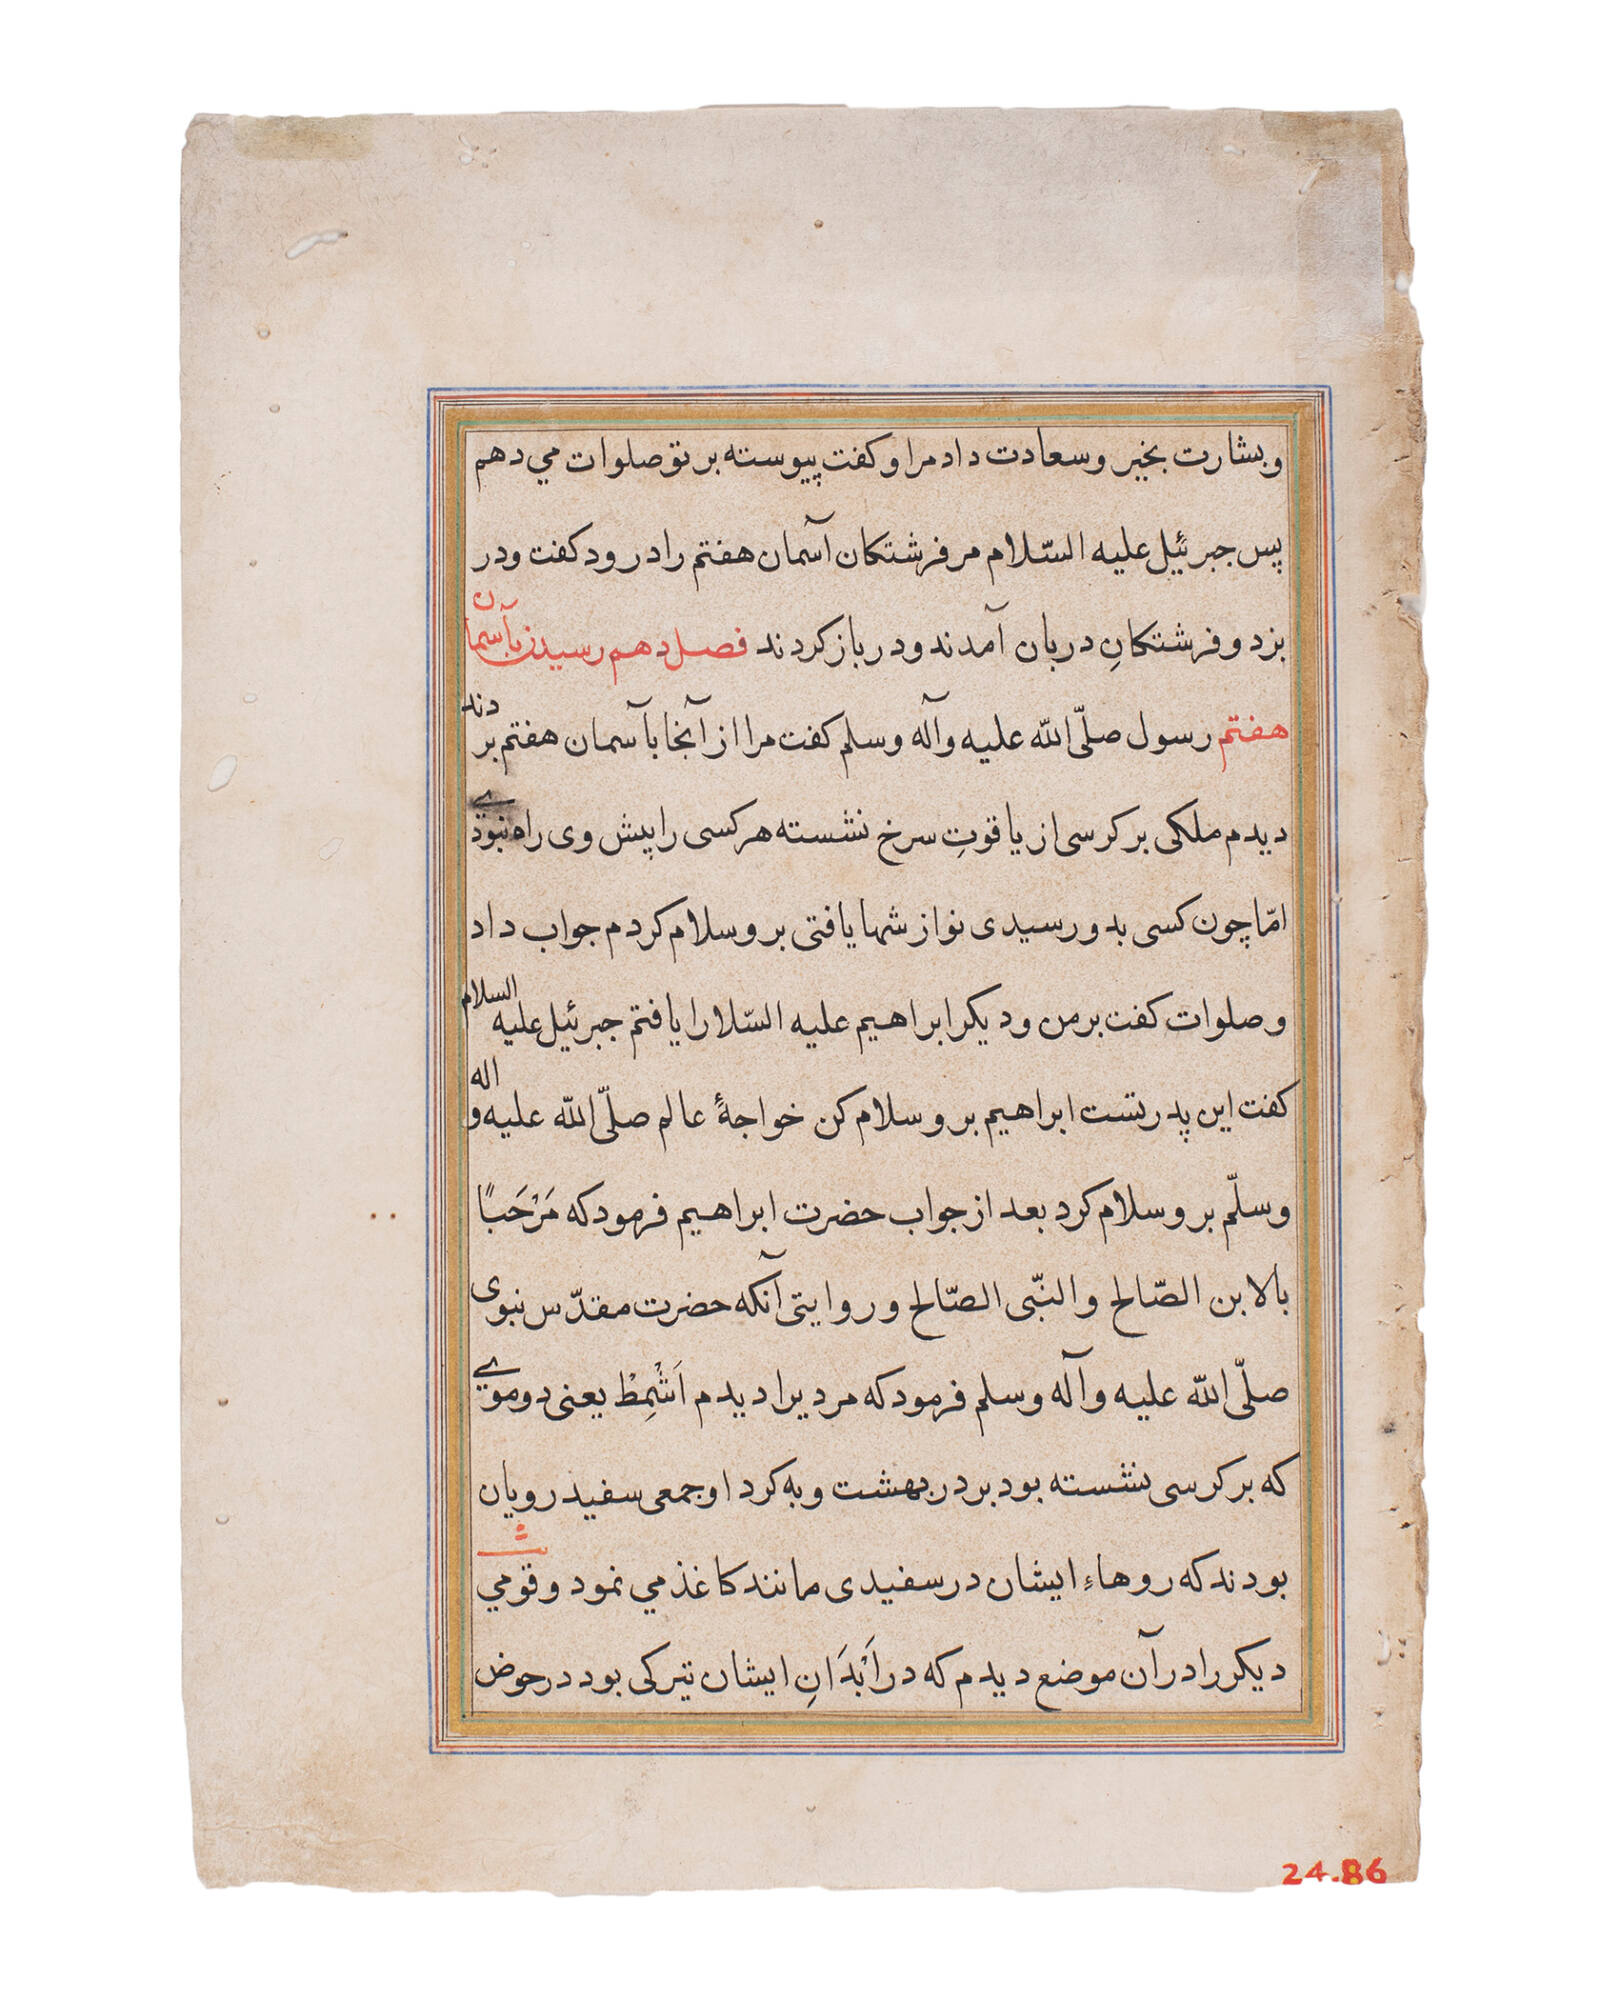 وبشارت بخیر وسعادت داد مرا و کفت پیوسته بر تو صلوات می دهم
پس جبرئیل علیه السّلام مر فرشتکان آسمان هفتم را درود کفت و در
بزد و فرشتکانِ دربان آمدند و در باز کردند فصل دهم رسیدن بآسمان
هفتم رسول صلّی اللّه علیه وآله وسلم کفت مرا از آنجا بآسمان هفتم بردند
دیدم ملکی بر کرسی از یاقوتِ سرخ نشسته هر کسی را پیش وی راه نبودی
امّا چون کسی بدو رسیدی نوازشها یافتی برو سلام کردم جواب داد
و صلوات کفت بر من و دیکر ابراهیم علیه السّلا را یافتم جبرئیل علیه السلام
کفت این پدر تست ابراهیم برو سلام کن خواجهٔ عالم صلّی اللّه علیه و اله
وسلّم برو سلام کرد بعد از جواب حضرت ابراهیم فرمود که مَرْحَبًا
بالابن الصّالح والنبّی الصّالح و روایتی آنکه حضرت مقدّس نبوی
صلّی اللّه علیه وآله وسلم فرمود که مردیرا دیدم اَشْمِطْ یعنی دوموی
که بر کرسی نشسته بود بر در بهشت و به کرد او جمعی سفید رویان
بودند که روهاءِ ایشان در سفیدی مانند کاغذ می نمود و قومی
دیکر را در آن موضع دیدم که در اَبْدَانِ ایشان تیرکی بود در حوض
24.86